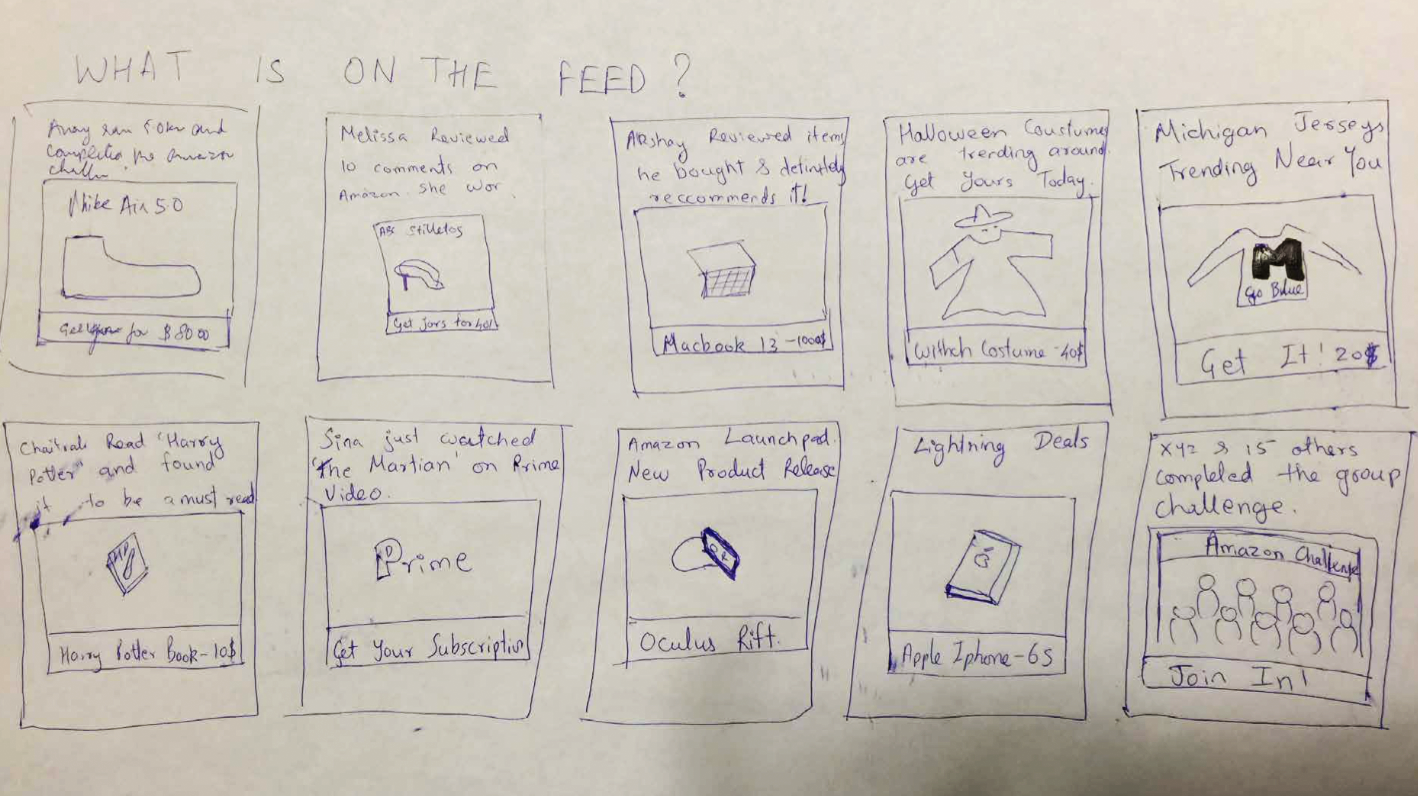 WHAT IS ON THE FEED ?
Anay ran 50km and
completed the amazon
Nike Air 5.0
for $ 80.00
Melissa Reviewed
10 comments on
Amazon. She wor
ABC Stilletos
Get yors for 40$
Akshay Reviewed items
he bought & definitely
reccommends it!
Macbook 13 - 1000$
Halloween Coustumes
are trending around.
Get Yours Today.
Withch Costume - 40$
Michigan Jerseys
Trending Near You
M
Go Blue
Get It! 20$
Chaitrali Read 'Harry
Potter' and found
it to be a must read
Harry Potter Book - 10$
Sina just watched
'The Martian' on Prime
Video.
Prime
Get Your Subscription
Amazon Launchpad.
New Product Release
Oculus Rift.
Lightning Deals
Apple Iphone - 6S
XYZ & 15 others
completed the group
challenge.
Amazon Challenge
Join In!